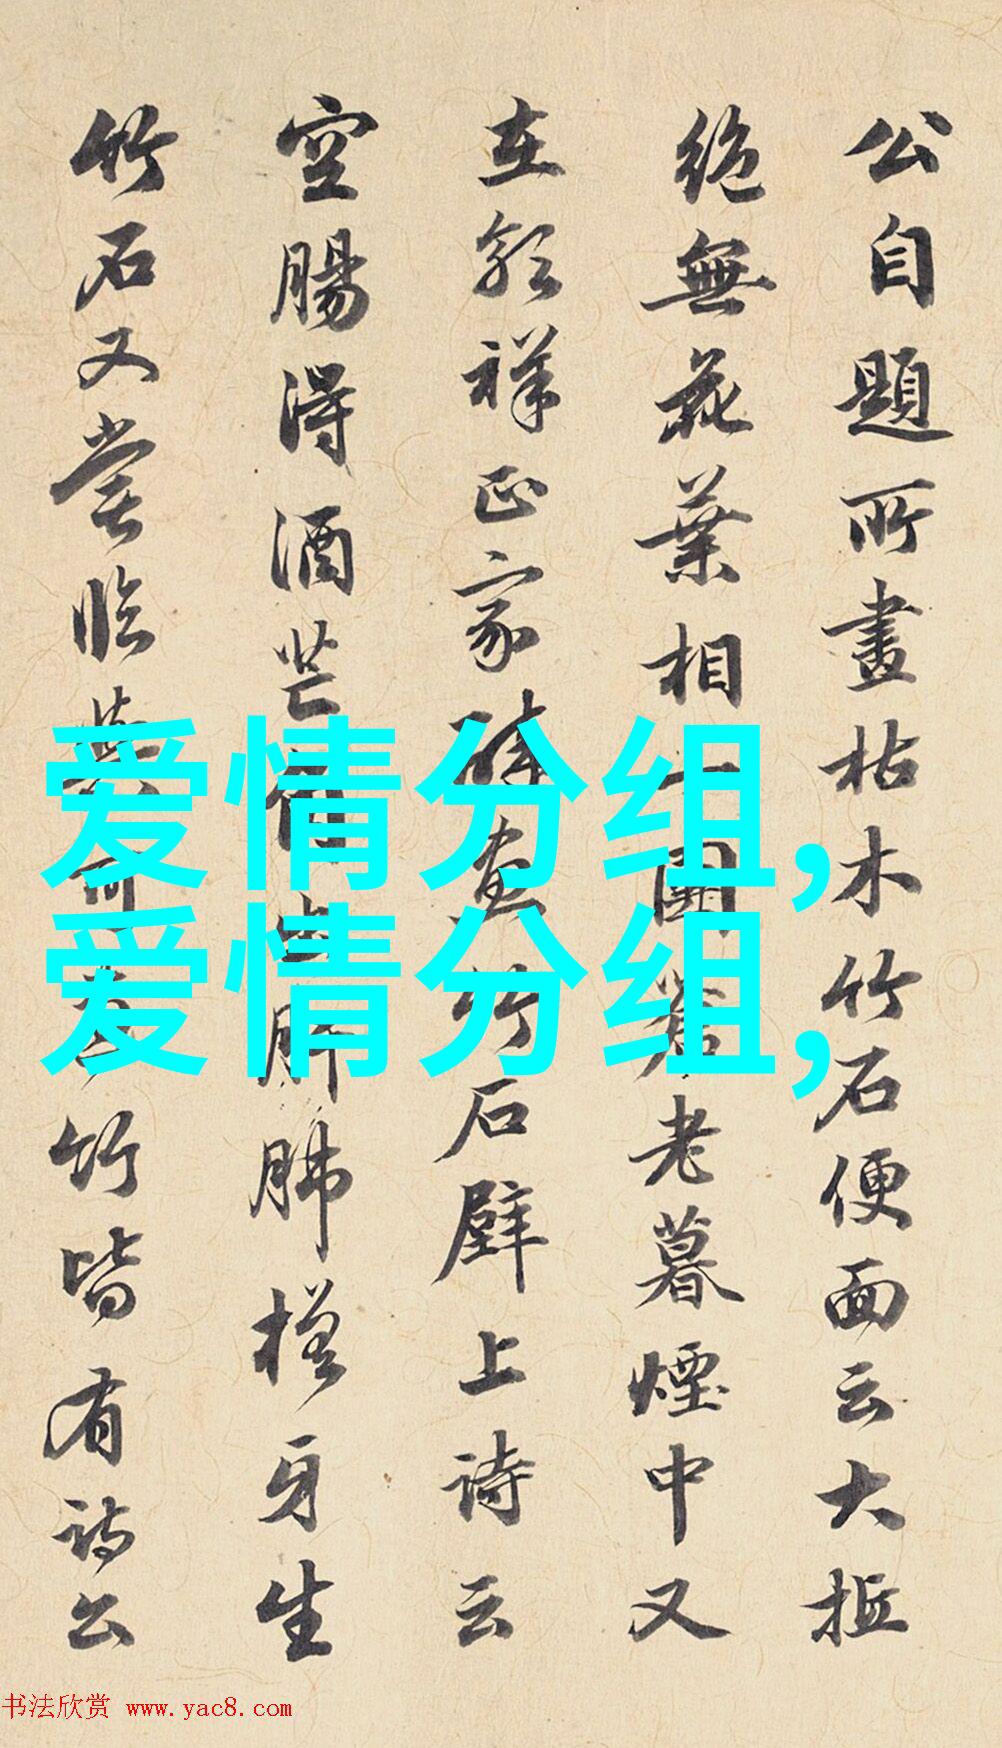 公自題所畫枯木竹石便面云大抵
絶無花葉相一圖蒼老暮煙中又
在郭祥正家醉畫竹石壁上詩云
空腸得酒芒角出肝肺槎牙生
竹石又嘗臨與可畫竹皆有詩公
爱情分组,
爱情分组,
书法欣赏 www.yac8.com